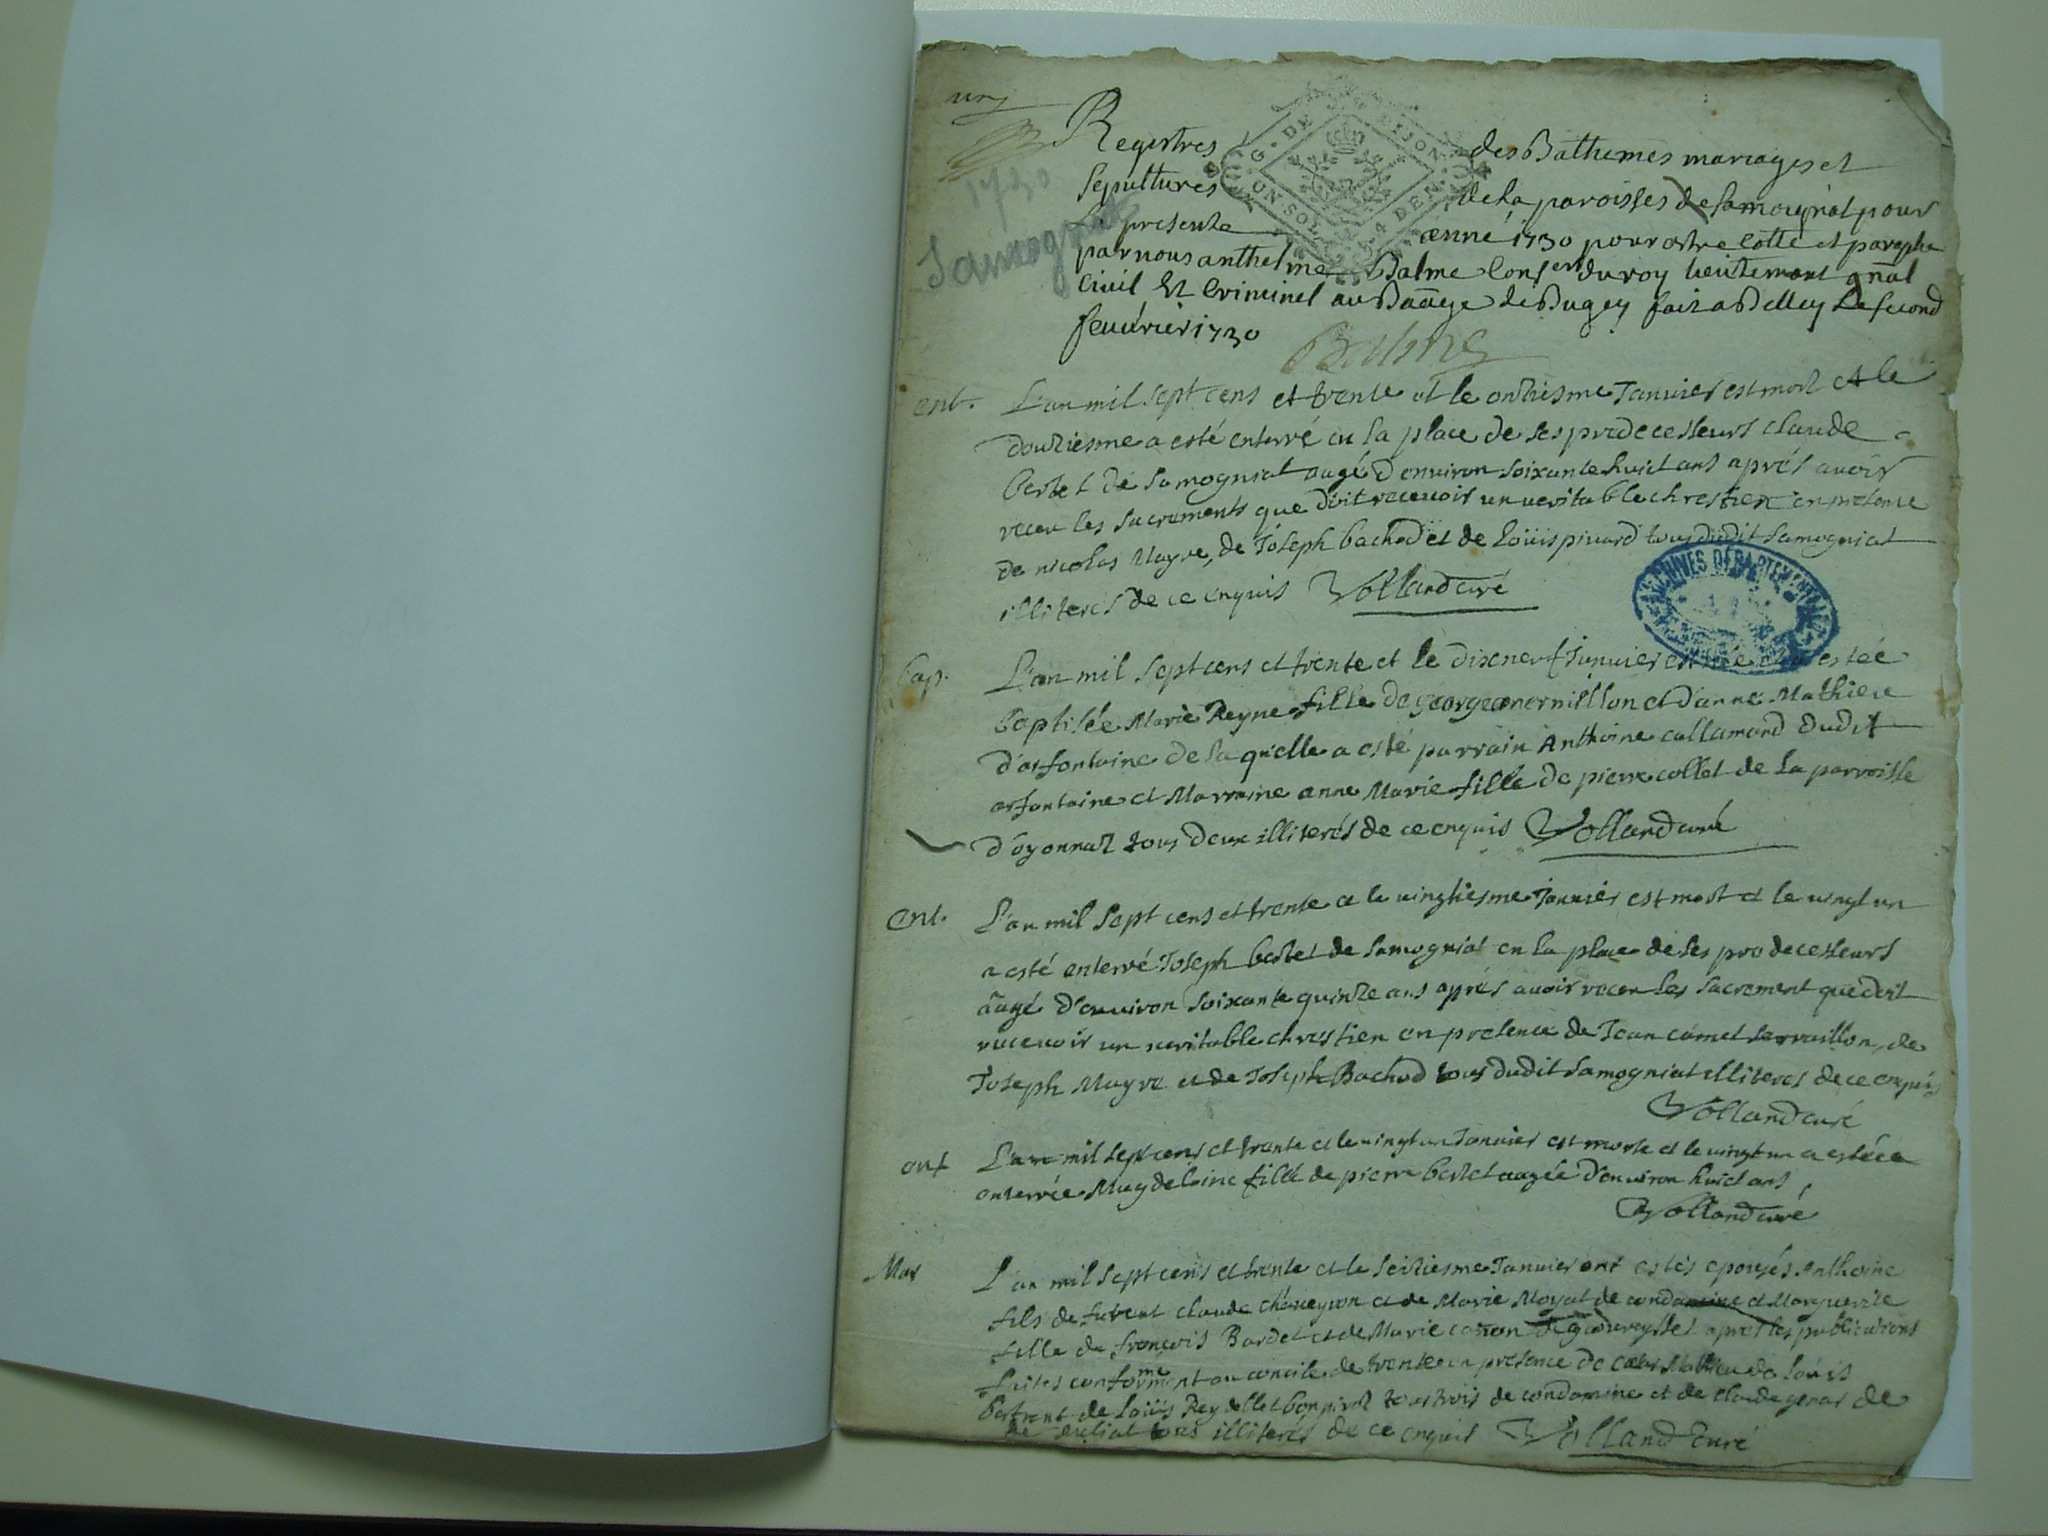 1730
Samognat
G. DE DIJON
Registres des Bathemes mariages et
sepultures de la paroisses de samougnat pour
presente année 1730 pour estre cotté et paraphe
par nous anthelme Balme Conser du roy lieutenant gnal
Civil Et Criminel au Baage de Bugey fait a Belley Le second
feuurier 1730
Balme
ent. L'an mil sept cens et trente et le onziesme Januier est mort et le
douziesme a esté enterré en la place de ses predecesseurs claude
bertet de samogniat aagé d'enuiron soixante huict ans aprés auoir
receu les sacrements que doit receuoir un ueritable chrestien en presence
de nicolas Mayre, de Joseph bachod et de Loüis piuard tous dudit samogniat
illiterés de ce enquis Volland curé
ARCHIVES DÉPARTEMENTALES
bap. L'an mil sept cens et trente et le dixneuf Januier est née et a estée
baptisée Marie Reyne fille de george mermillon et d'anne Mathieu
d'orfontaine de laquelle a esté parrain Anthoine callamard dudit
orfontaine et Marraine anne Marie fille de pierre collet de la parroisse
d'oyonnaz tous deux illiterés de ce enquis Volland curé
ent. L'an mil sept cens et trente et le uingtiesme Januier est mort et le uingt un
a esté enterré Joseph bertet de samogniat en la place de ses prodecesseurs
aagé d'enuiron soixante quinze ans aprés auoir receu les sacrement que doit
receuoir un ueritable chrestien en presence de Jean comet seruaillon, de
Joseph Mayre et de Joseph Bachod tous dudit samogniat illiteres de ce enquis
Volland curé
ent L'an mil sept cens et trente et le uingt un Januier est morte et le uingt un a estée
enterrée Magdeleine fille de pierre bertet aagée d'enuiron huict ans
Volland curé
Mar L'an mil sept cens et trente et le seiziesme Januier ont estés epousés Anthoine
fils de fut claude chaneyron et de Marie Moyat de condamine et Marguerite
fille de françois Bardet et de Marie de goureysset apres les publications
faites conformement au concile de trente en presence de Mathieu de Loüis
bertrant de Loüis Reydellet bonpiroz tous trois de condamine et de claude genas de
illiterés de ce enquis Volland Curé